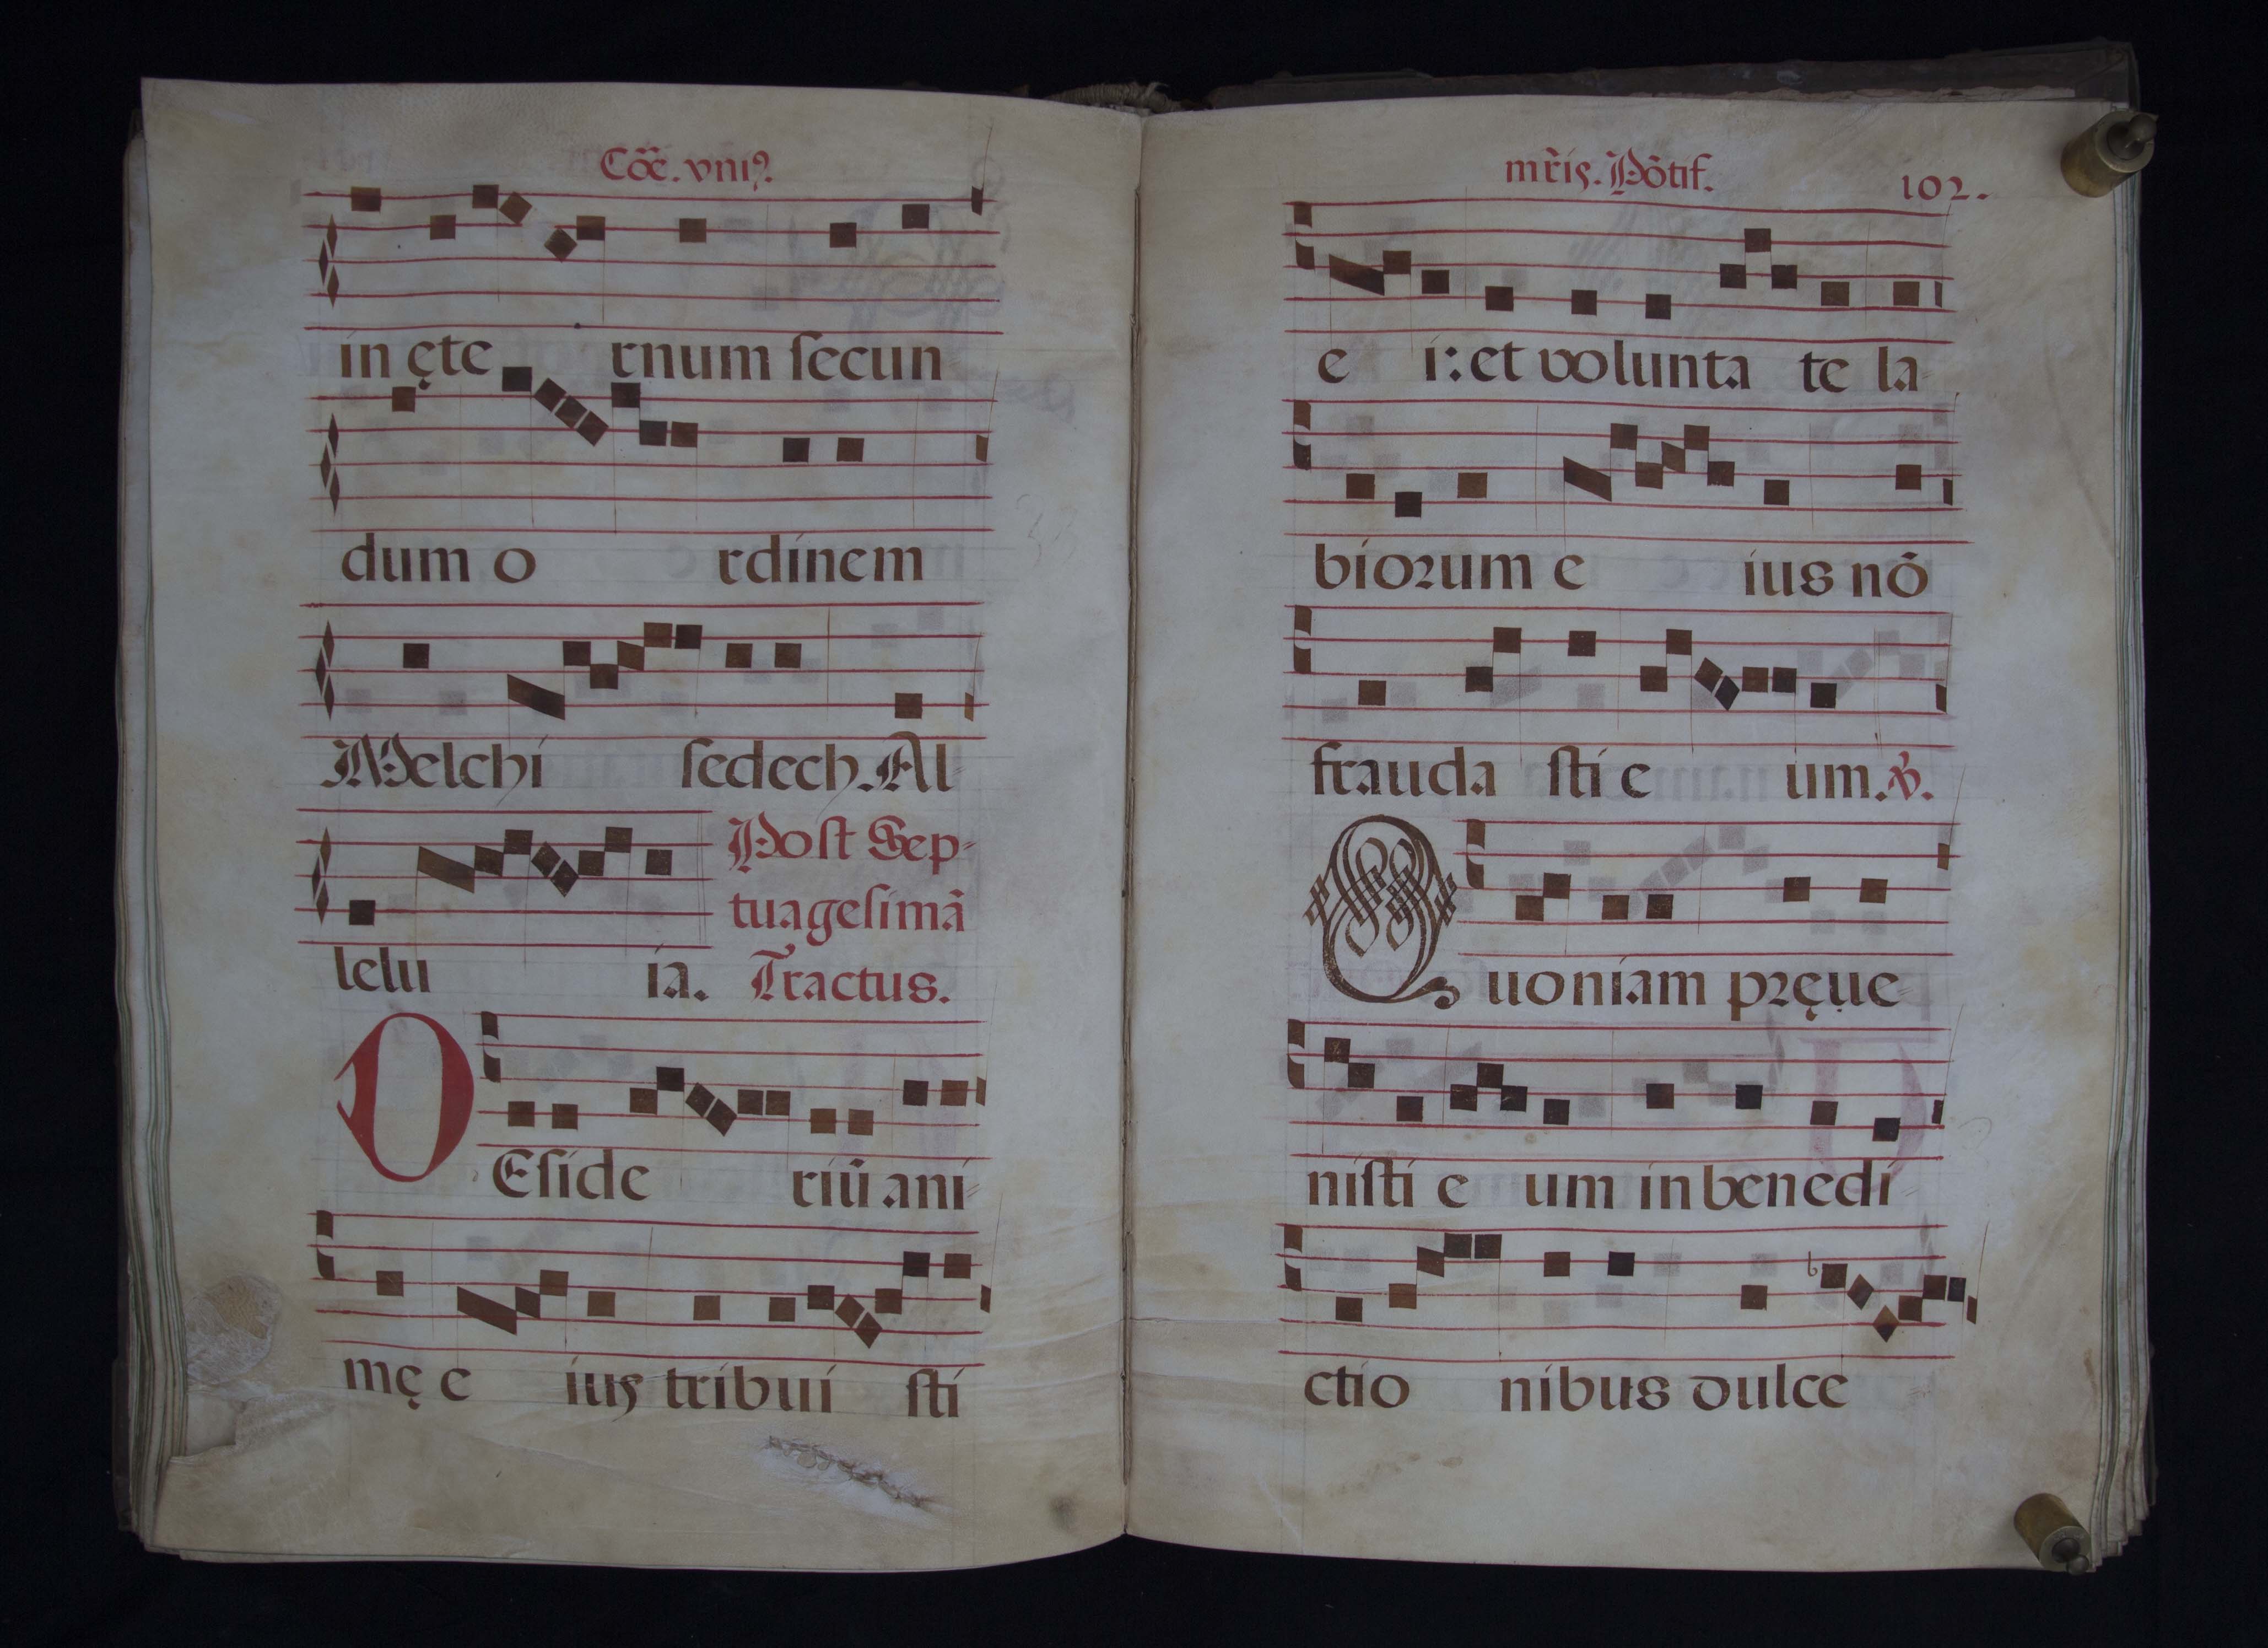 Cõe. vniꝰ.
in ęte rnum ſecun
dum o rdinem
Melchi ſedech. Al-
lelu ia.
Poſt Sep-
tuageſimã
Tractus.
DEſide riũ ani-
mę e ius tribui ſti
mr̃is. Põtif. 102.
e i: et volunta te la-
biorum e ius nõ
frauda ſti e um. ℣.
Quoniam pręue-
niſti e um in benedi-
ctio nibus dulce-